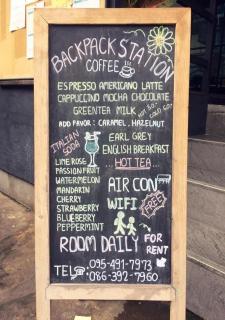 BACKPACK STATION
COFFEE
ESPRESSO AMERICANO LATTE
CAPPUCCINO MOCHA CHOCOLATE
GREENTEA MILK HOT 30.-
COLD 40.-
ADD FAVOR : CARAMEL, HAZELNUT
ITALIAN
SODA
LIME ROSE
PASSION FRUIT
WATERMELON
MANDARIN
CHERRY
STRAWBERRY
BLUEBERRY
PEPPERMINT
EARL GREY
ENGLISH BREAKFAST
...HOT TEA...
AIR CON
WIFI
FREE
ROOM DAILY FOR
RENT
TEL 095-491-7973
086-392-7960